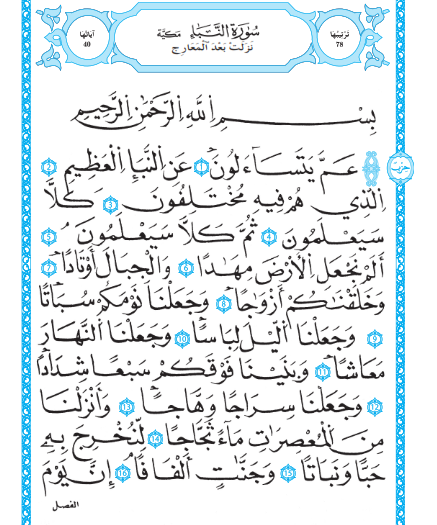 ترتيبها
78
سُورَةُ النَّبَإِ مَكيَّة
نَزَلَتْ بَعْدَ الْمَعَارِج
آياتها
40
بِسْمِ اللَّهِ الرَّحْمَٰنِ الرَّحِيمِ
عَمَّ يَتَسَاءَلُونَ 1 عَنِ النَّبَإِ الْعَظِيمِ 2
الَّذِي هُمْ فِيهِ مُخْتَلِفُونَ 3 كَلَّا
سَيَعْلَمُونَ 4 ثُمَّ كَلَّا سَيَعْلَمُونَ 5
أَلَمْ نَجْعَلِ الْأَرْضَ مِهَادًا 6 وَالْجِبَالَ أَوْتَادًا 7
وَخَلَقْنَاكُمْ أَزْوَاجًا 8 وَجَعَلْنَا نَوْمَكُمْ سُبَاتًا
9 وَجَعَلْنَا اللَّيْلَ لِبَاسًا 10 وَجَعَلْنَا النَّهَارَ
مَعَاشًا 11 وَبَنَيْنَا فَوْقَكُمْ سَبْعًا شِدَادًا
12 وَجَعَلْنَا سِرَاجًا وَهَّاجًا 13 وَأَنْزَلْنَا
مِنَ الْمُعْصِرَاتِ مَاءً ثَجَّاجًا 14 لِنُخْرِجَ بِهِ
حَبًّا وَنَبَاتًا 15 وَجَنَّاتٍ أَلْفَافًا 16 إِنَّ يَوْمَ
الفصل